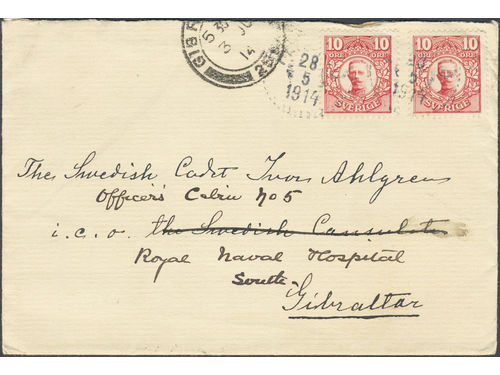 GIB
5 30
3 JU
14
25
28
5
1914
10 10
ÖRE ÖRE
SVERIGE
28
5
1914
10 10
ÖRE ÖRE
SVERIGE
The Swedish Cadet Ivor Ahlgren
Officer's Cabin No 5
i.c.o. the Swedish Consulate
Royal Naval Hospital
South
Gibraltar